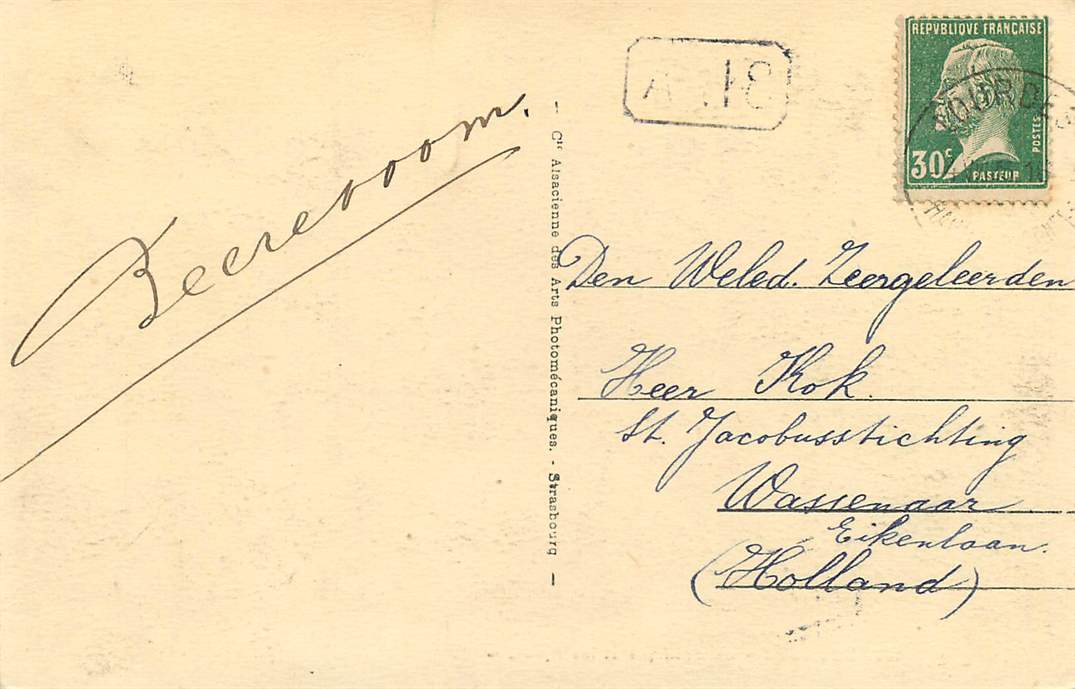 Beereboom.
— Cie Alsacienne des Arts Photomécaniques. - Strasbourg —
REPVBLIQUE FRANÇAISE
POSTES
30c
PASTEUR
LOURDES
Den Weled. Zeergeleerden
Heer Kok.
St. Jacobusstichting
Wassenaar
Eikenlaan.
(Holland)